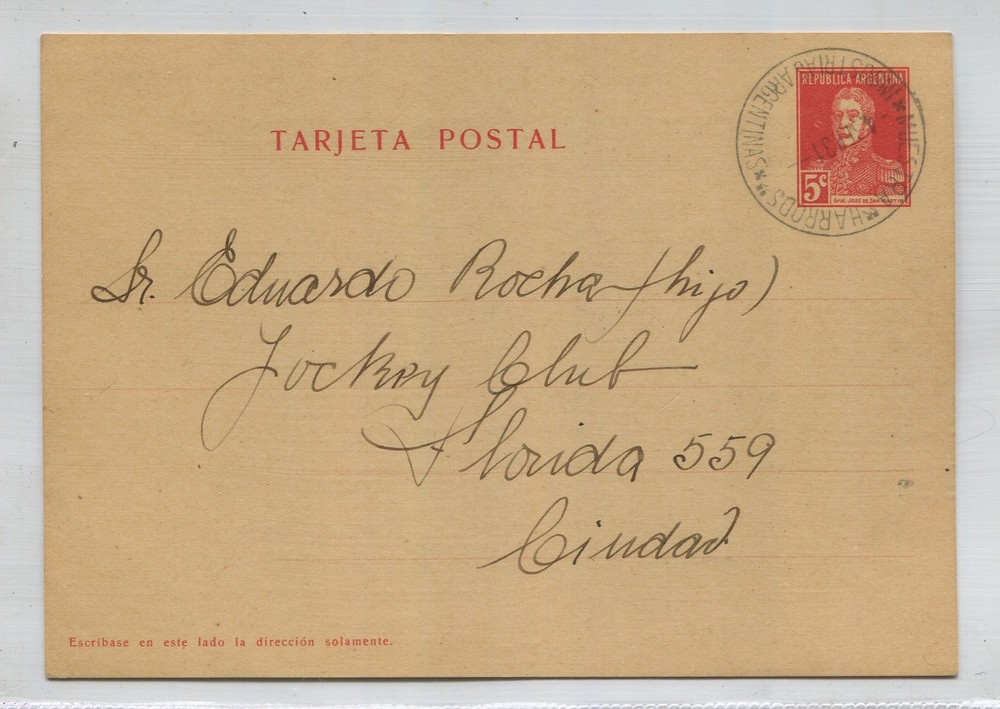 REPUBLICA ARGENTINA
TARJETA POSTAL
5c
Gral. José de San Martín
"HARRODS"
INDUSTRIAS ARGENTINAS
Sr. Eduardo Rocha (hijo)
Jockey Club
Florida 559
Ciudad
Escríbase en este lado la dirección solamente.